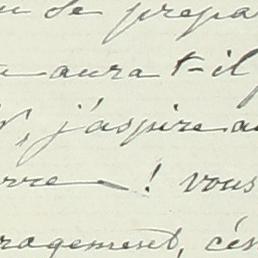 se prepa
aura t-il
j'aspire au
rre — ! vous
ragement, c'es